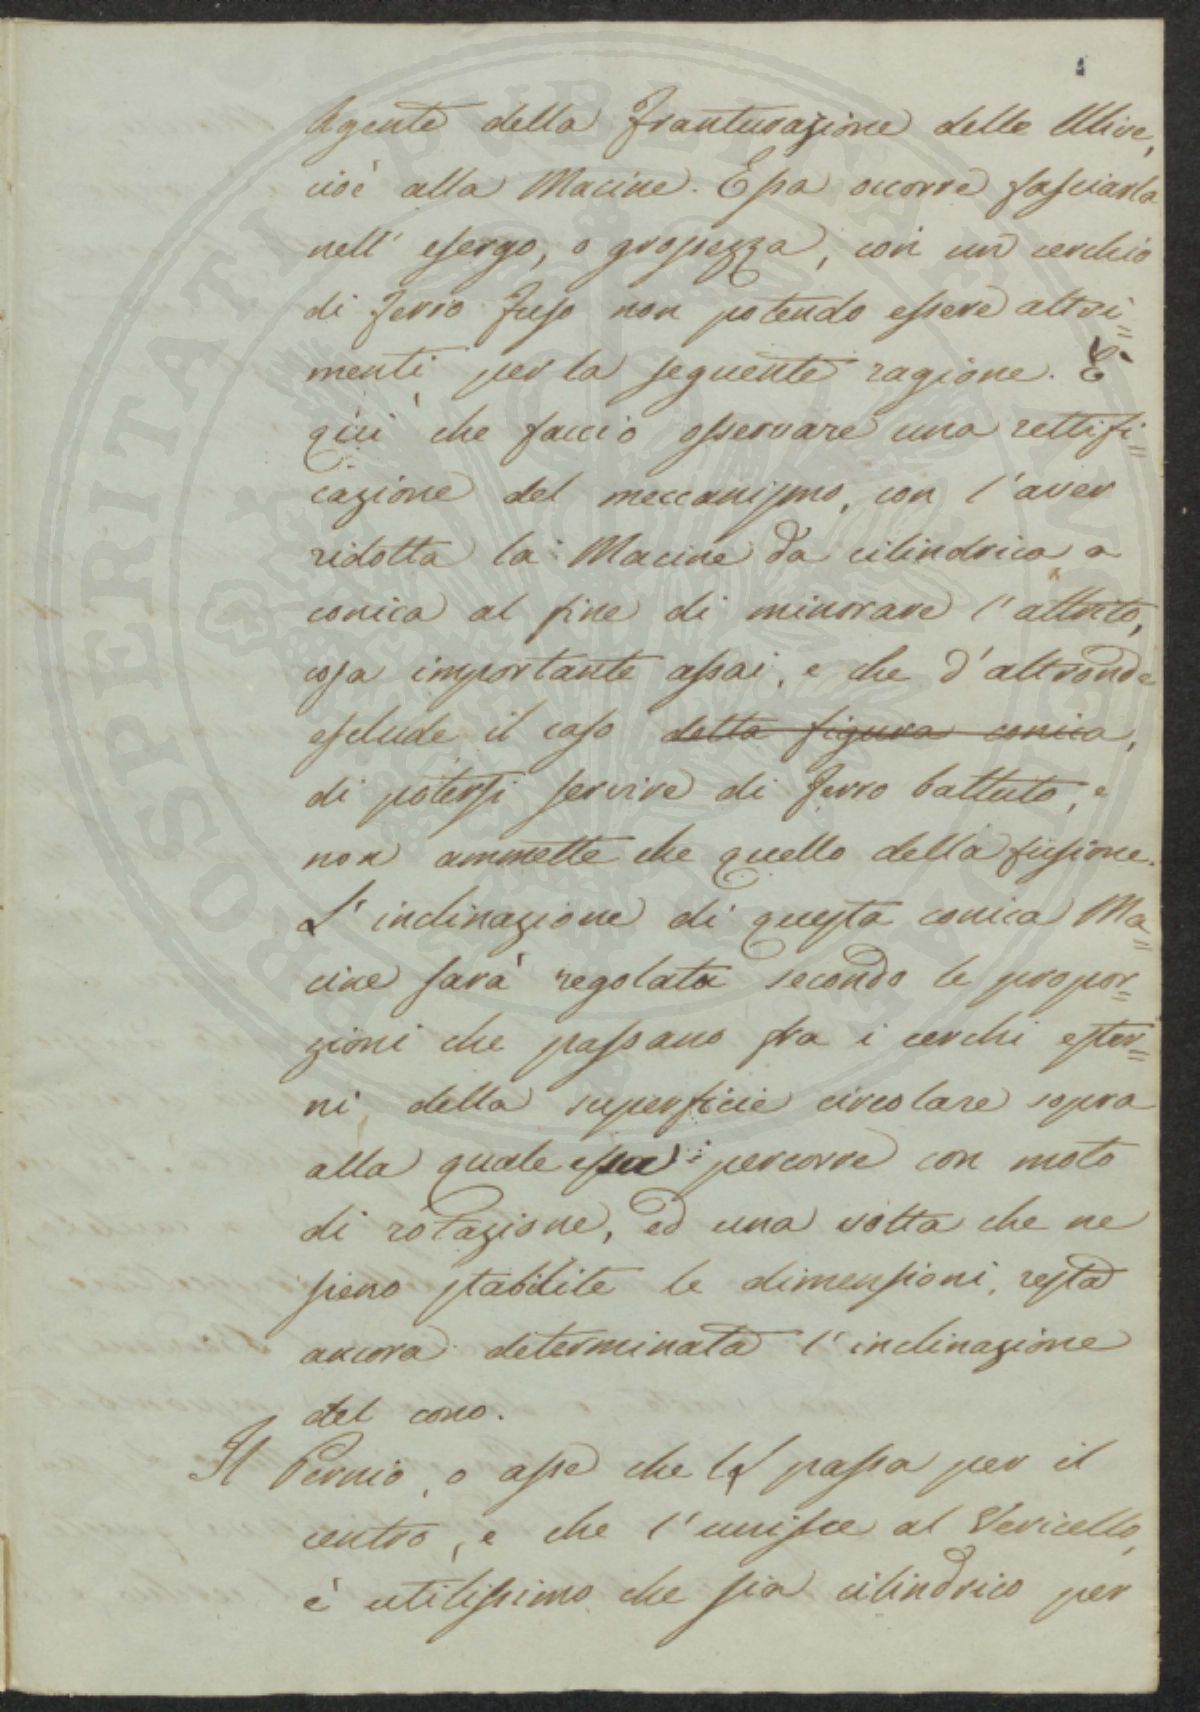 Agente della Franturazione delle Ulive,
cioè alla Macine. Essa occorre fasciarla
nell' esergo, o grossezza, con un cerchio
di ferro fuso non potendo essere altri=
menti per la seguente ragione. È
qui che faccio osservare una rettifi=
cazione del meccanismo, con l'aver
ridotta la Macine da cilindrica a
conica al fine di minorare l'attrito,
cosa importante assai, e che d'altronde
esclude il caso detta figura conica,
di potersi servire di ferro battuto, e
non ammette che quello della fusione.
L'inclinazione di questa conica Ma=
cine sarà regolata secondo le propor=
zioni che passano fra i cerchi ester=
ni della superficie circolare sopra
alla quale essa percorre con moto
di rotazione, ed una volta che ne
sieno stabilite le dimensioni, resta
ancora determinata l'inclinazione
del cono.
Il Pernio, o asse che passa per il
centro, e che l'unisce al Vericello,
è utilissimo che sia cilindrico per
PROSPERITATI PUBLICAE AUGENDAE